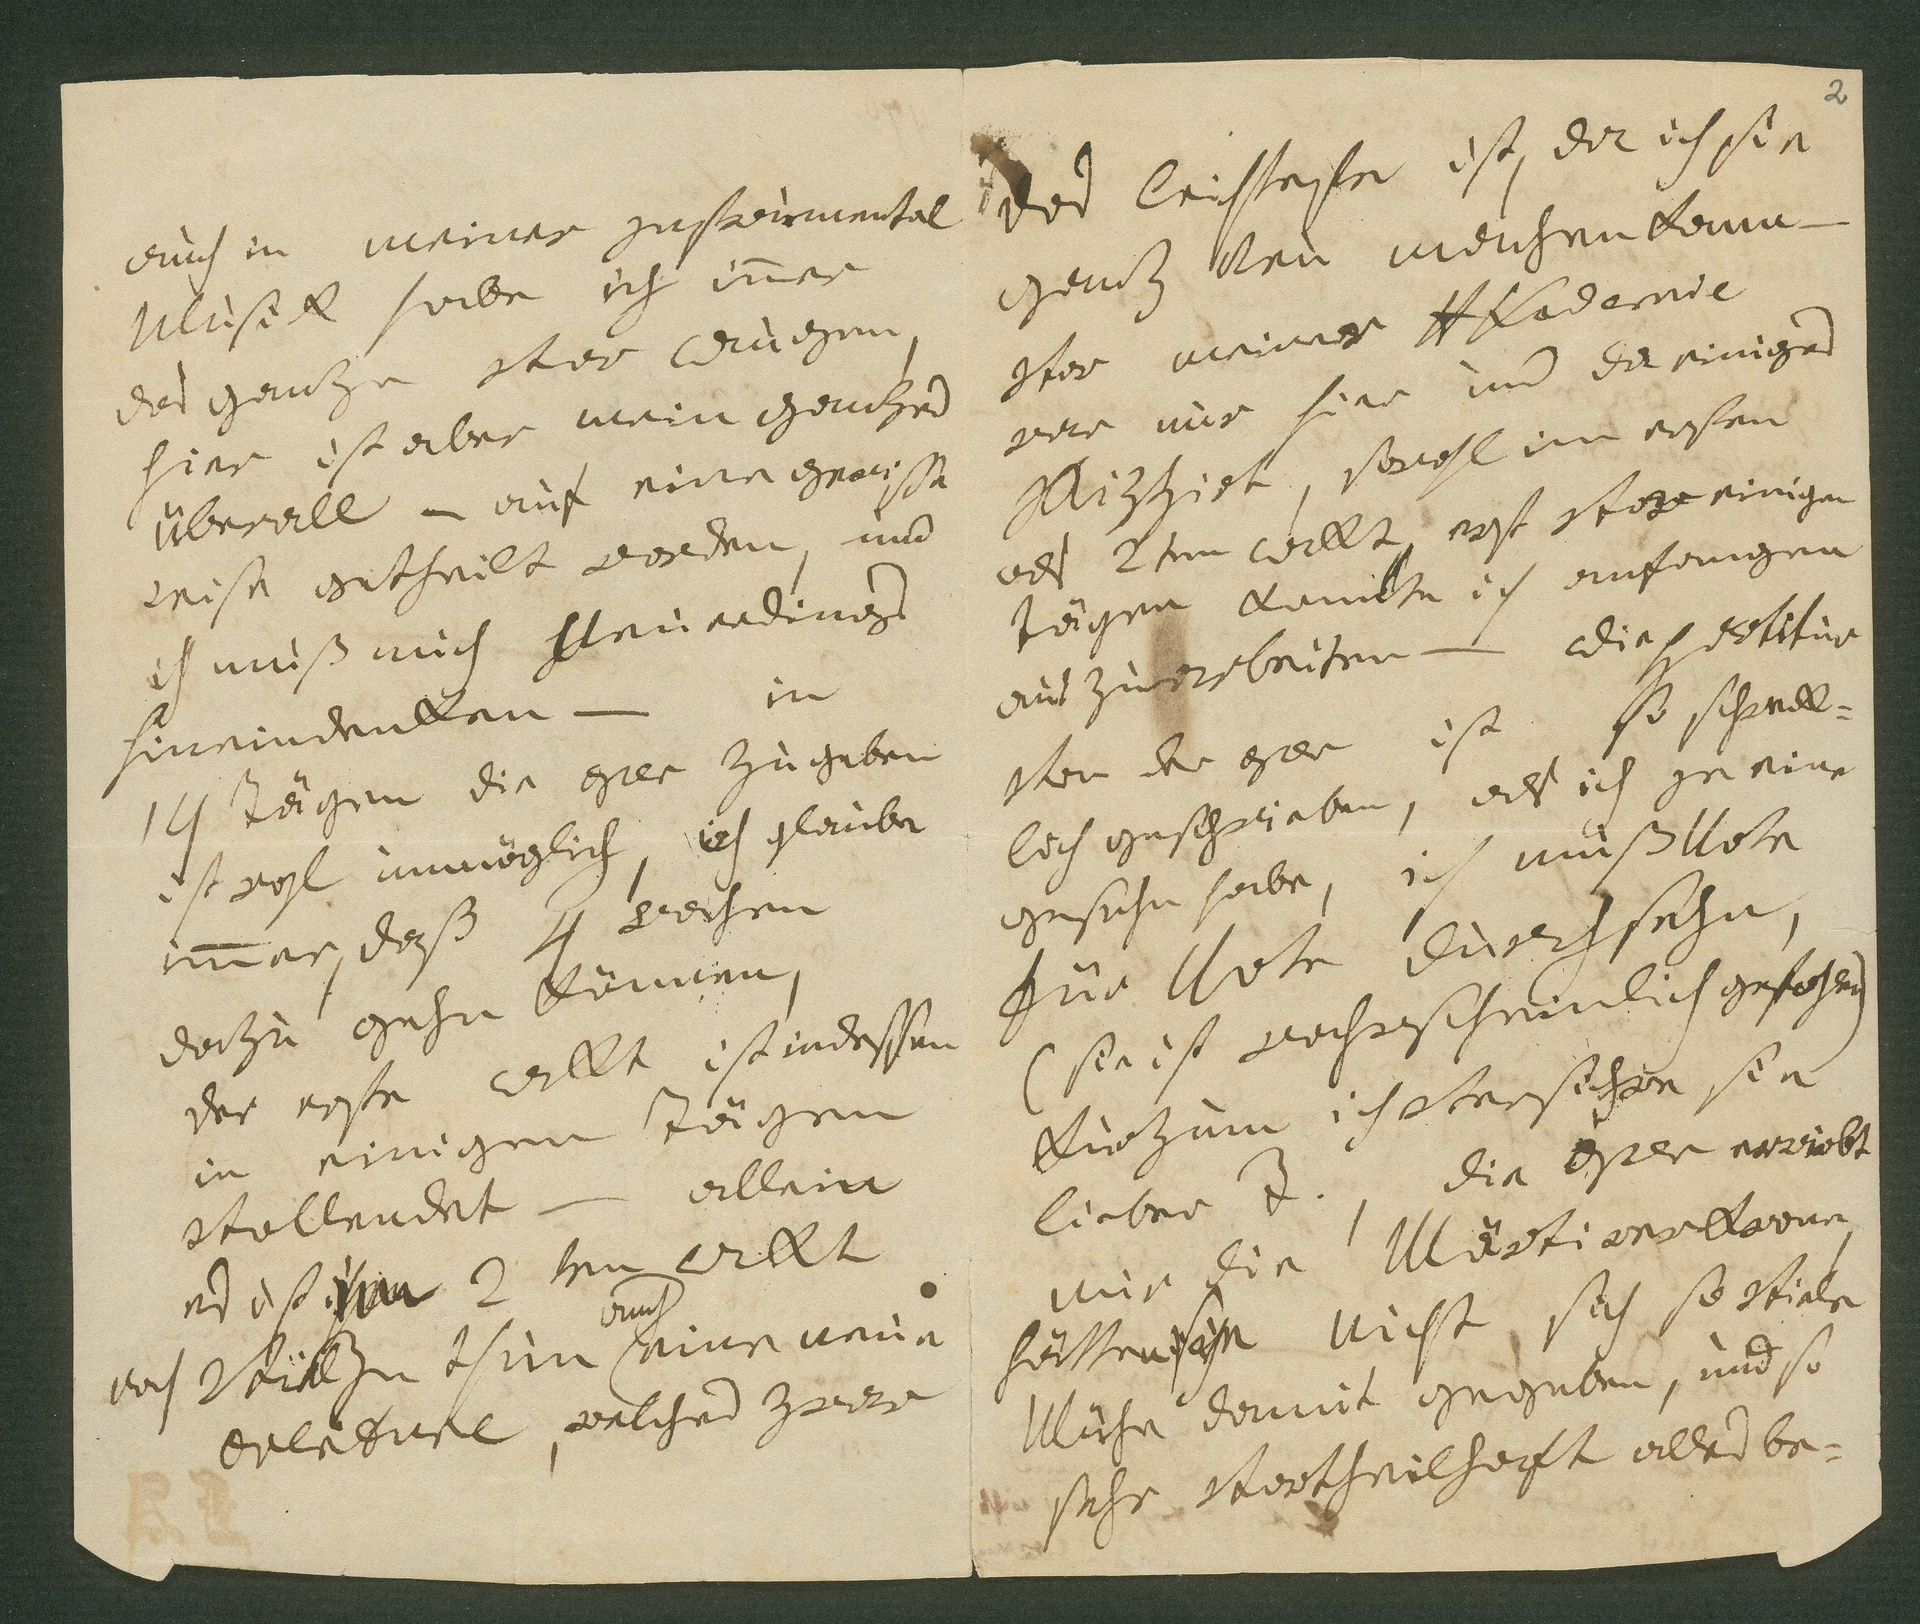 auch in meiner Instrumental
Musick habe ich imer
das gantze vor augen,
hier ist aber mein gantzes
überall – auf eine gewisse
weise getheilt worden, und
ich muß mich Neuerdings
hineindenken — in
14 Tägen die oper zu geben
ist wohl unmöglich, ich glaube
imer, daß 4 wochen
dazu gehn können,
der erste ackt ist indessen
in einigen Tägen
vollendet — allein
es ist im 2ten ackt
auch
noch viel zu thun eine neue
ouverture, welches zwar
das leichteste ist, da ich sie
gantz neu machen kann —
vor meiner Akademie
war nur hier und da einiges
skizzirt, sowohl im ersten
als 2ten ackt, erst vor einigen
Tägen konnte ich anfangen
auszuarbeiten — die partitur
von der oper ist so schreck=
lich geschrieben, als ich je eine
gesehn habe, ich muß Note
für Note durchsehn,
(sie ist wahrscheinlich gestohlen)
kurzum ich versichre sie
lieber T., die oper erwirbt
mir die Märtirerkrone,
hätten sie nicht sich so viele
Mühe damit gegeben, und so
sehr vortheilhaft alles be=
2